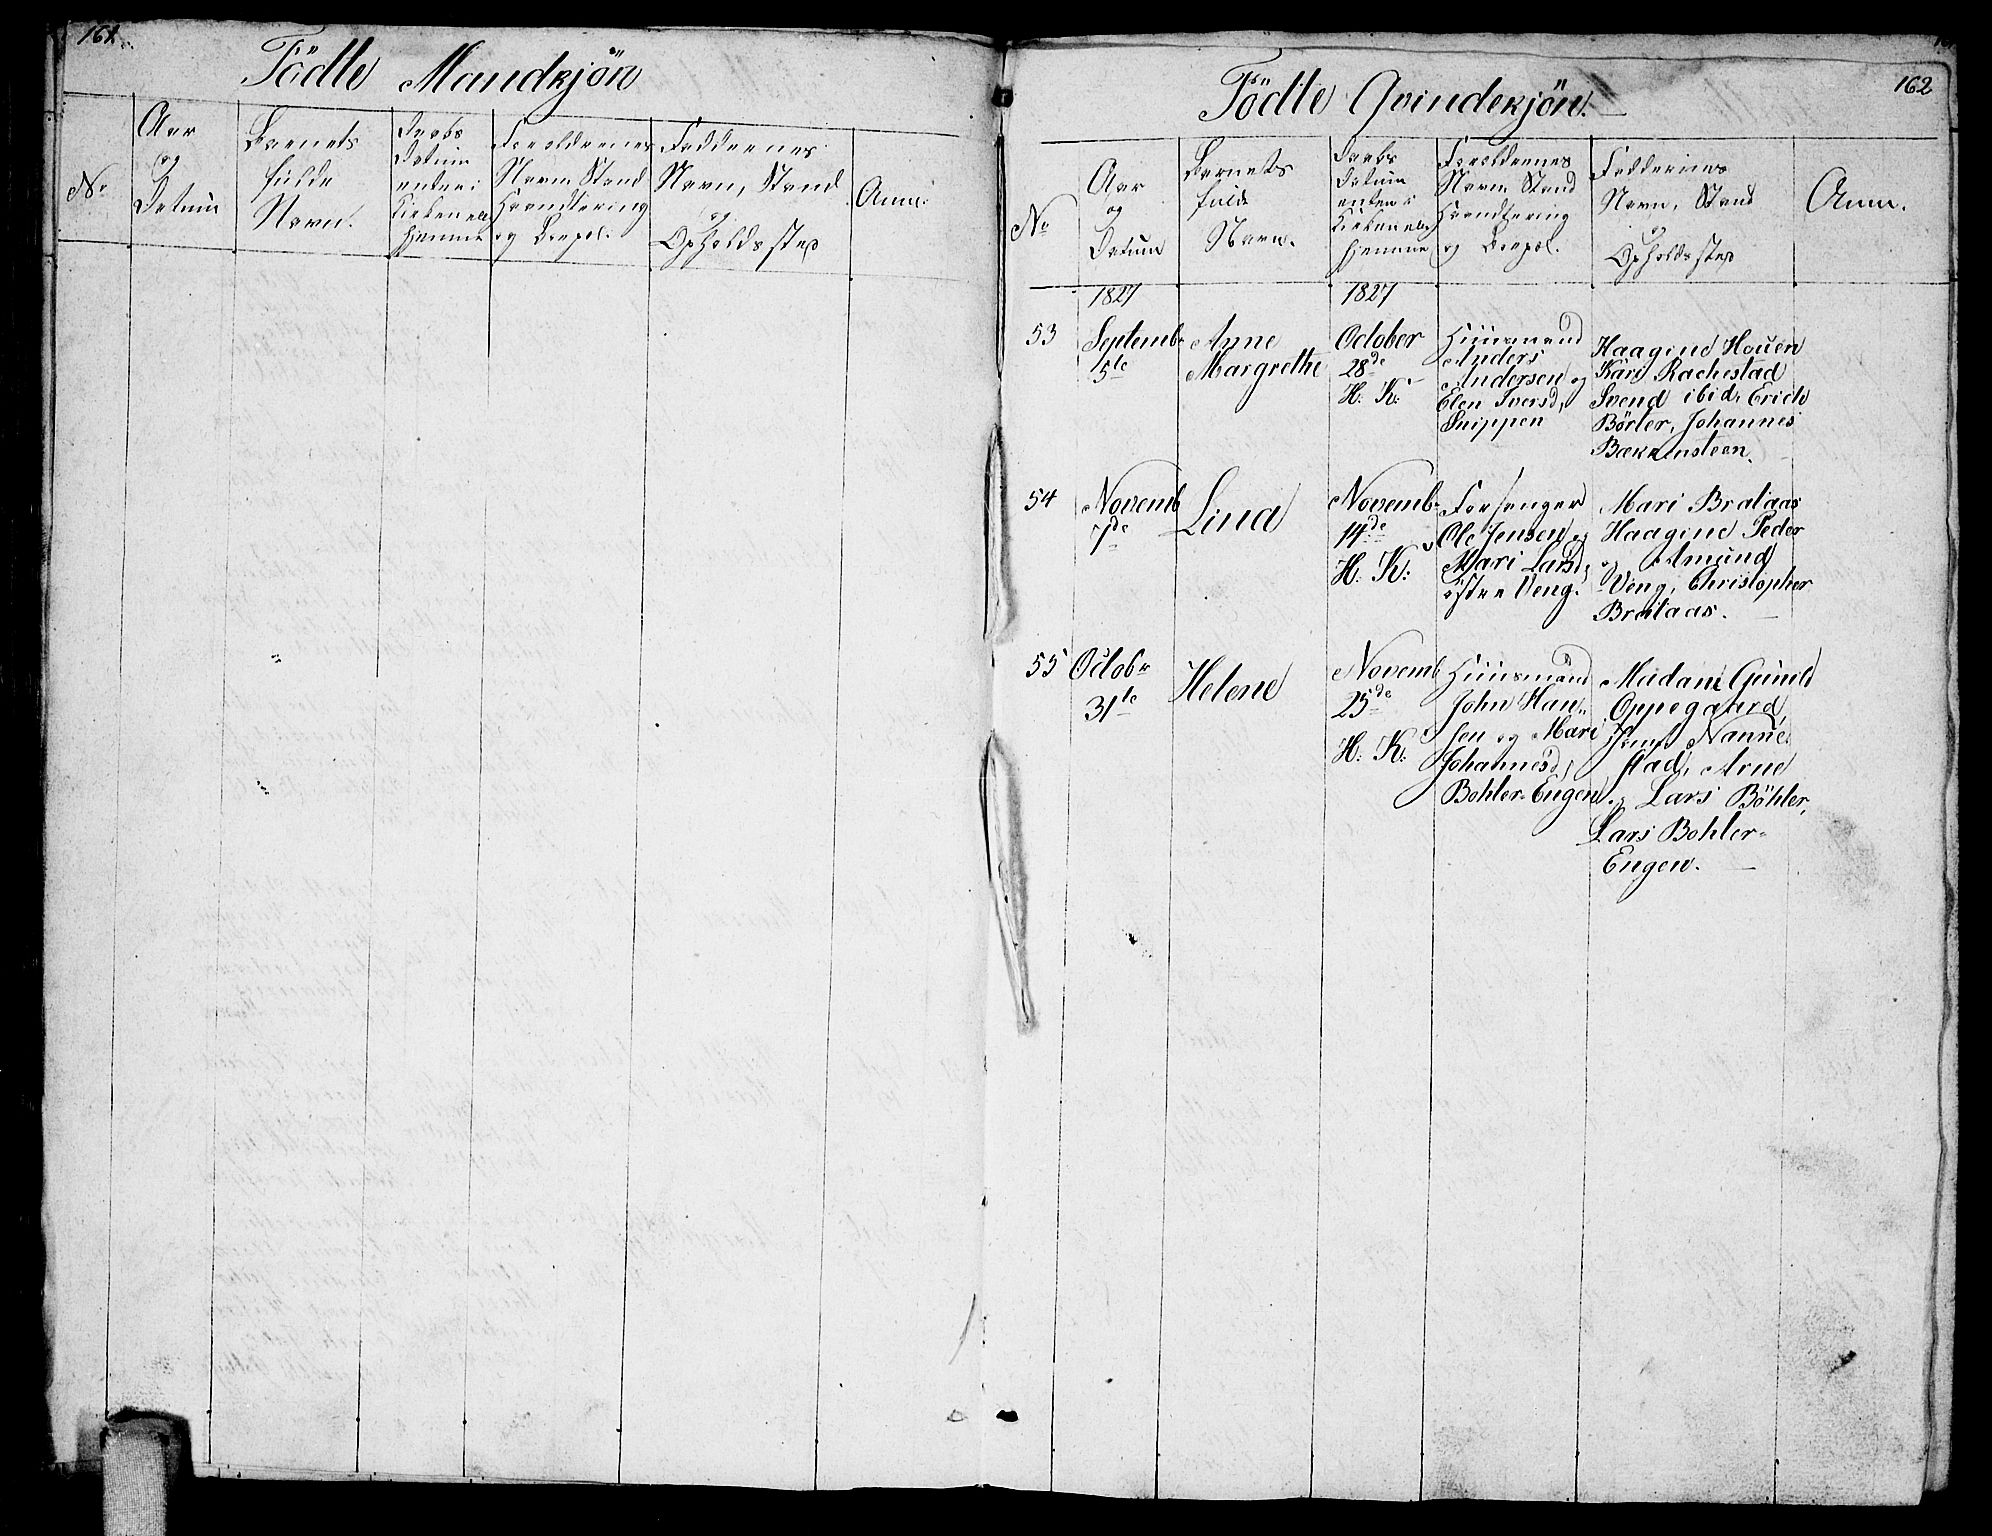 161
Födte Mandkjön
No
Aar
og
Datum
Barnets
fulde
Navn.
Daabs
Datum
enten i
Kirken eller
hjemme
Forældrenes
Navn Stand
Haandtering
og Boepæl.
Faddernes
Navn, Stand
og
Opholdssted
Anm:
162
Födte Qvindekjön.
No
Aar
og
Datum
Barnets
fulde
Navn.
Daabs
Datum
enten i
Kirken eller
hjemme
Forældrenes
Navn Stand
Haandtering
og Boepæl.
Faddernes
Navn, Stand
og
Opholdssted
Anm.
1827
1827
53
Septembr
5te
Anne
Margrethe
October
28de
H. K:
Huusmand
Anders
Andersen og
Elen Iversd,
Snippen
Haagine Houen
Kari Rachestad
Svend ibid, Erich
Börter, Johannes
Bækkensteen.
54
Novemb
7de
Lina
Novembr
14de
H. K:
Forsanger
Ole Jensen og
Mari Larsd,
östre Veng.
Mari Brataas
Haagine Peder
og Amund
Veng, Christopher
Brataas.
55
Octobr
31te
Helene
Novemb
25de
H. K:
Huusmand
John Han-
sen og Mari
Johannesd,
Bohler-Engen
Madam Gunild
Oppegaard,
Nanne-
stad, Arne
og Lars Böhler,
Lars Bohler-
Engen.